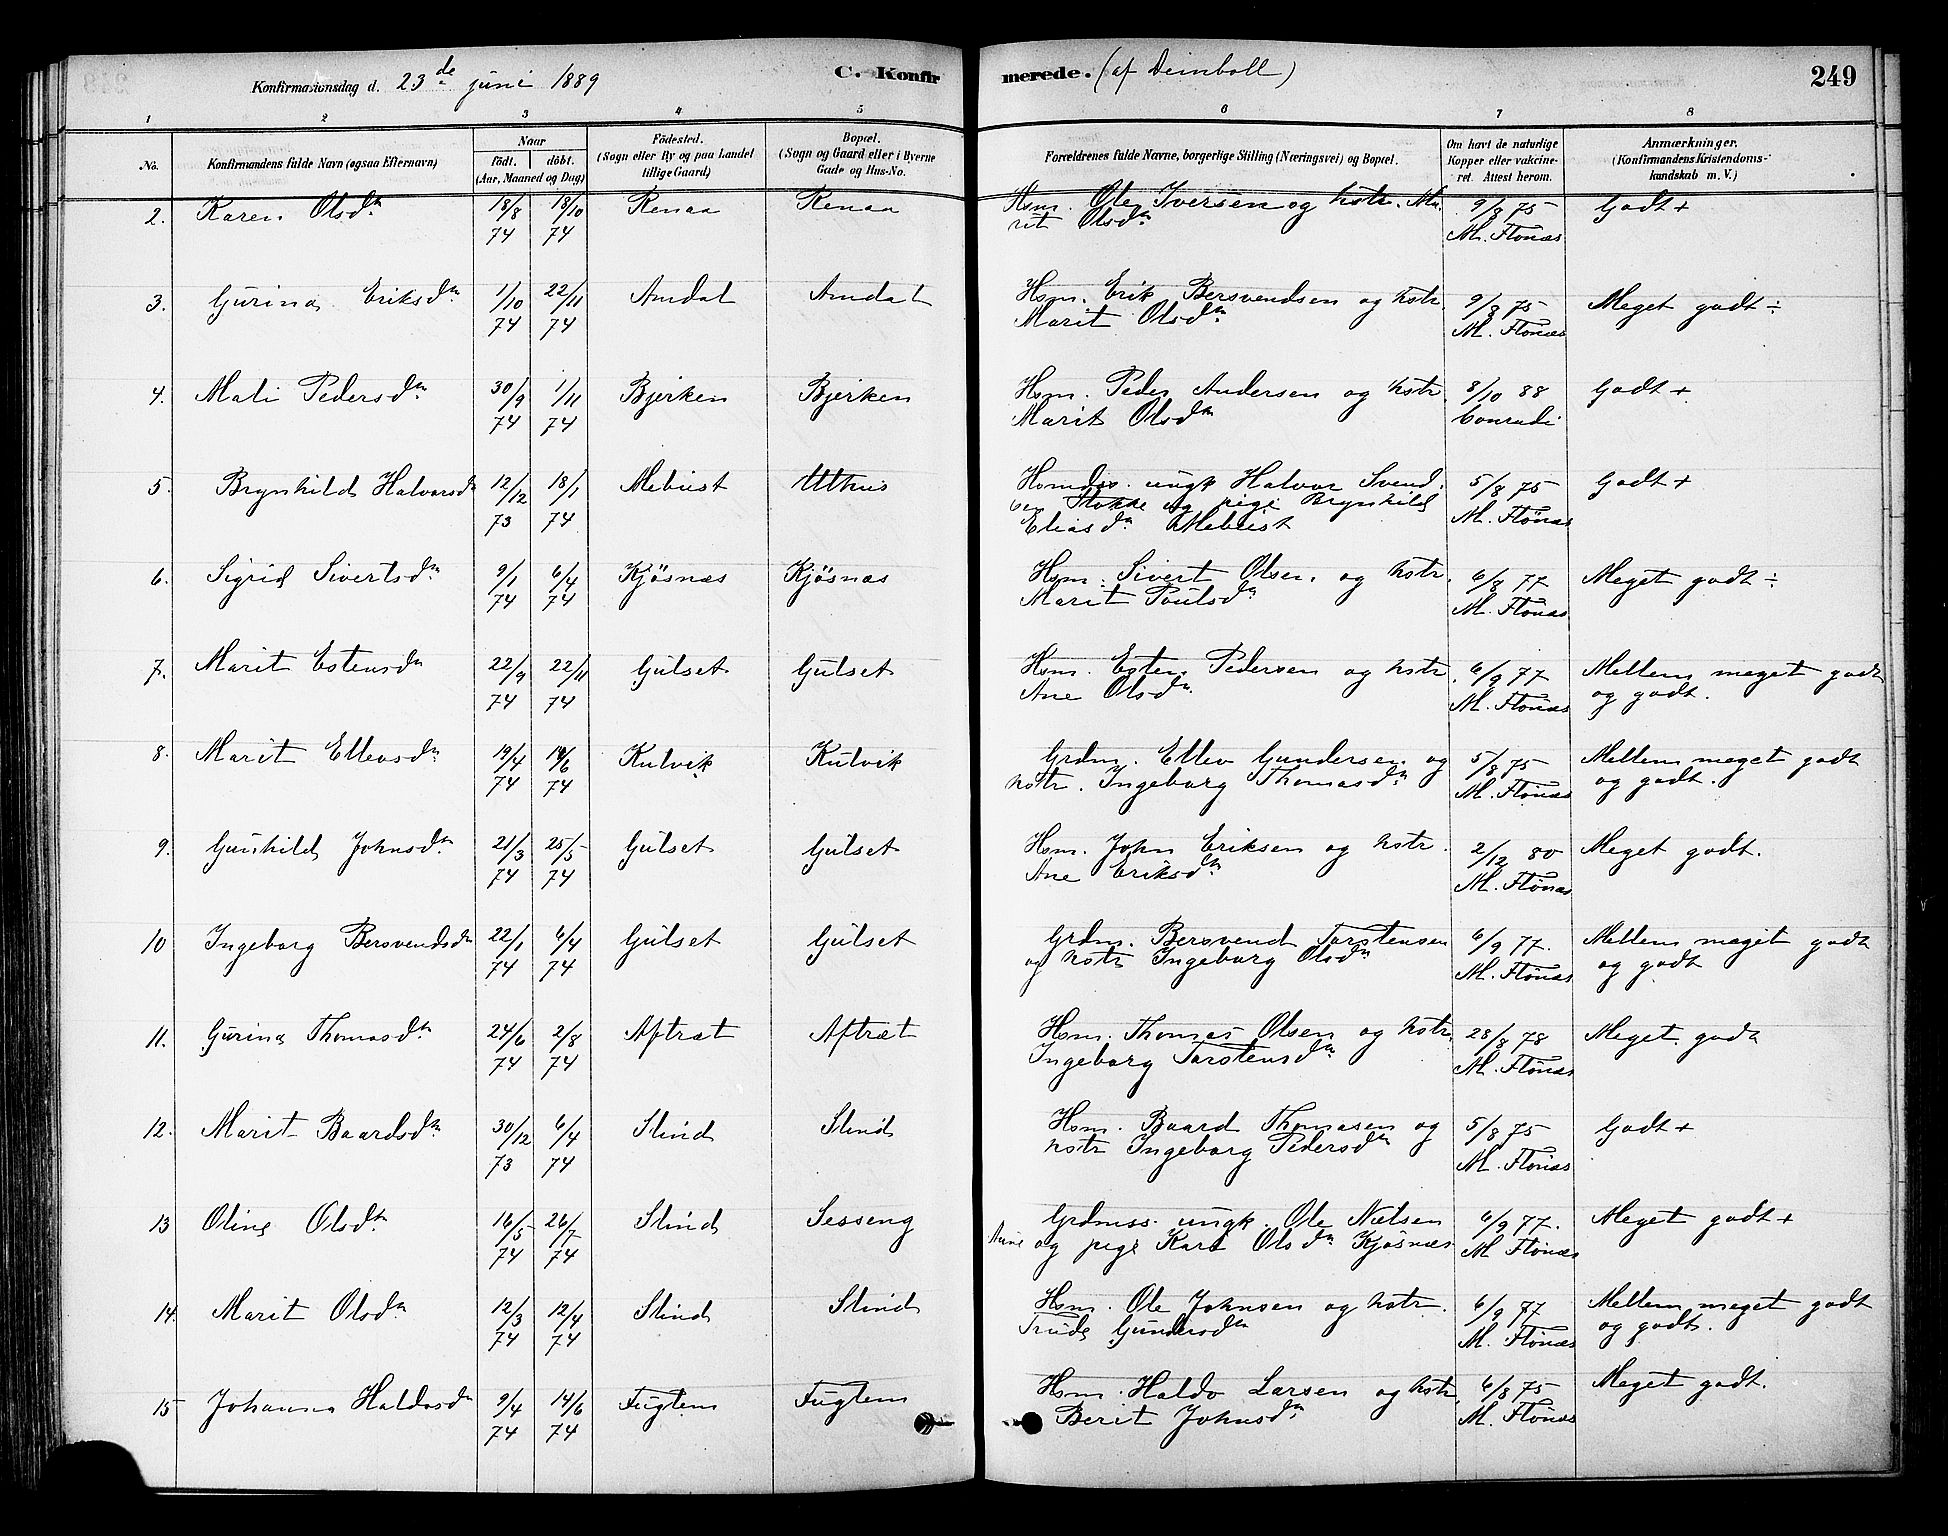 Konfirmasionsdag d. 23de juni 1889
C. Konfirmerede. (af Deinboll)
249
1 2 3 4 5 6 7 8
No.
Konfirmandens fulde Navn (ogsaa Efternavn)
Naar
födt. döbt.
(Aar, Maaned og Dag)
Födested.
(Sogn eller By og paa Landet
tillige Gaard)
Bopæl.
(Sogn og Gaard eller i Byerne
Gade og Hus-No.
Forældrenes fulde Navne, borgerlige Stilling (Næringsvei) og Bopæl.
Om havt de naturlige
Kopper eller vakcine-
ret. Attest herom.
Anmærkninger.
(Konfirmandens Kristendoms-
kundskab m. V.)
2. Karen Olsdtr 18/8 74 18/10 74 Renaa Renaa Hsm. Ole Iversen og hstr. Ma-
rit Olsdtr 9/8 75 M. Flönæs Godt +
3. Gurina Eriksdtr 1/10 74 22/11 74 Amdal Amdal Hsm. Erik Bersvendsen og hstr
Marit Olsdtr 9/8 75 M. Flönæs Meget godt ÷
4. Mali Pedersdtr 30/9 74 1/11 74 Bjerken Bjerken Hsm. Peder Andersen og hstr.
Marit Olsdtr 8/10 88 Conradi Godt +
5. Brynhild Halvorsdtr 12/12 73 18/1 74 Mebust Uthus Hsmdss. ungk Halvor Svend-
sen Stokke og pige Brynhild
Eliasdtr Mebust 5/8 75 M. Flönæs Godt +
6. Sigrid Sivertsdtr 9/1 74 6/4 74 Kjösnæs Kjösnæs Hsm. Sivert Olsen og hstr.
Marit Poulsdtr 6/8 77 M. Flönæs Meget godt ÷
7. Marit Estensdtr 22/9 74 22/11 74 Gulset Gulset Hsm. Esten Pedersen og hstr.
Ane Olsdtr 6/9 77 M. Flönæs Mellem meget godt
og godt.
8. Marit Ellevsdtr 19/4 74 14/6 74 Kulvik Kulvik Grdm. Ellev Gundersen og
hstr. Ingeborg Thomasdtr 5/8 75 M. Flönæs Mellem meget godt
og godt.
9. Gunhild Johnsdtr 21/3 74 25/5 74 Gulset Gulset Hsm. John Eriksen og hstr.
Ane Eriksdtr 2/12 80 M. Flönæs Meget godt.
10 Ingeborg Bersvendsdtr 22/1 74 6/4 74 Gulset Gulset Grdm. Bersvend Torstensen
og hstr Ingeborg Olsdtr 6/9 77. M. Flönæs Mellem meget godt
og godt
11. Gurina Thomasdtr 24/6 74 2/8 74 Aftræt Aftræt Hsm. Thomas Olsen og hstr.
Ingeborg Torstensdtr 28/8 78 M. Flönæs Meget godt
12. Marit Baardsdtr 30/12 73 6/4 74 Slind Slind Hsm. Baard Thomasen og
hstr Ingeborg Pedersdtr 5/8 75 M. Flönæs Godt +
13 Oline Olsdtr 16/5 74 26/7 74 Slind Sesseng Grdmss. ungk. Ole Nielsen
Aune og pige Kari Olsdtr Kjösnæs 6/9 77. M. Flönæs Meget godt +
14. Marit Olsdtr 12/3 74 12/4 74 Slind Slind Hsm. Ole Johnsen og hstr.
Trude Gundersdtr 6/9 77 M. Flönæs Mellem meget godt
og godt.
15 Johanna Haldosdtr 9/4 74 14/6 74 Fuglem Fuglem Hsm. Haldo Larsen og hstr.
Berit Johnsdtr 6/8 75 M. Flönæs Meget godt.